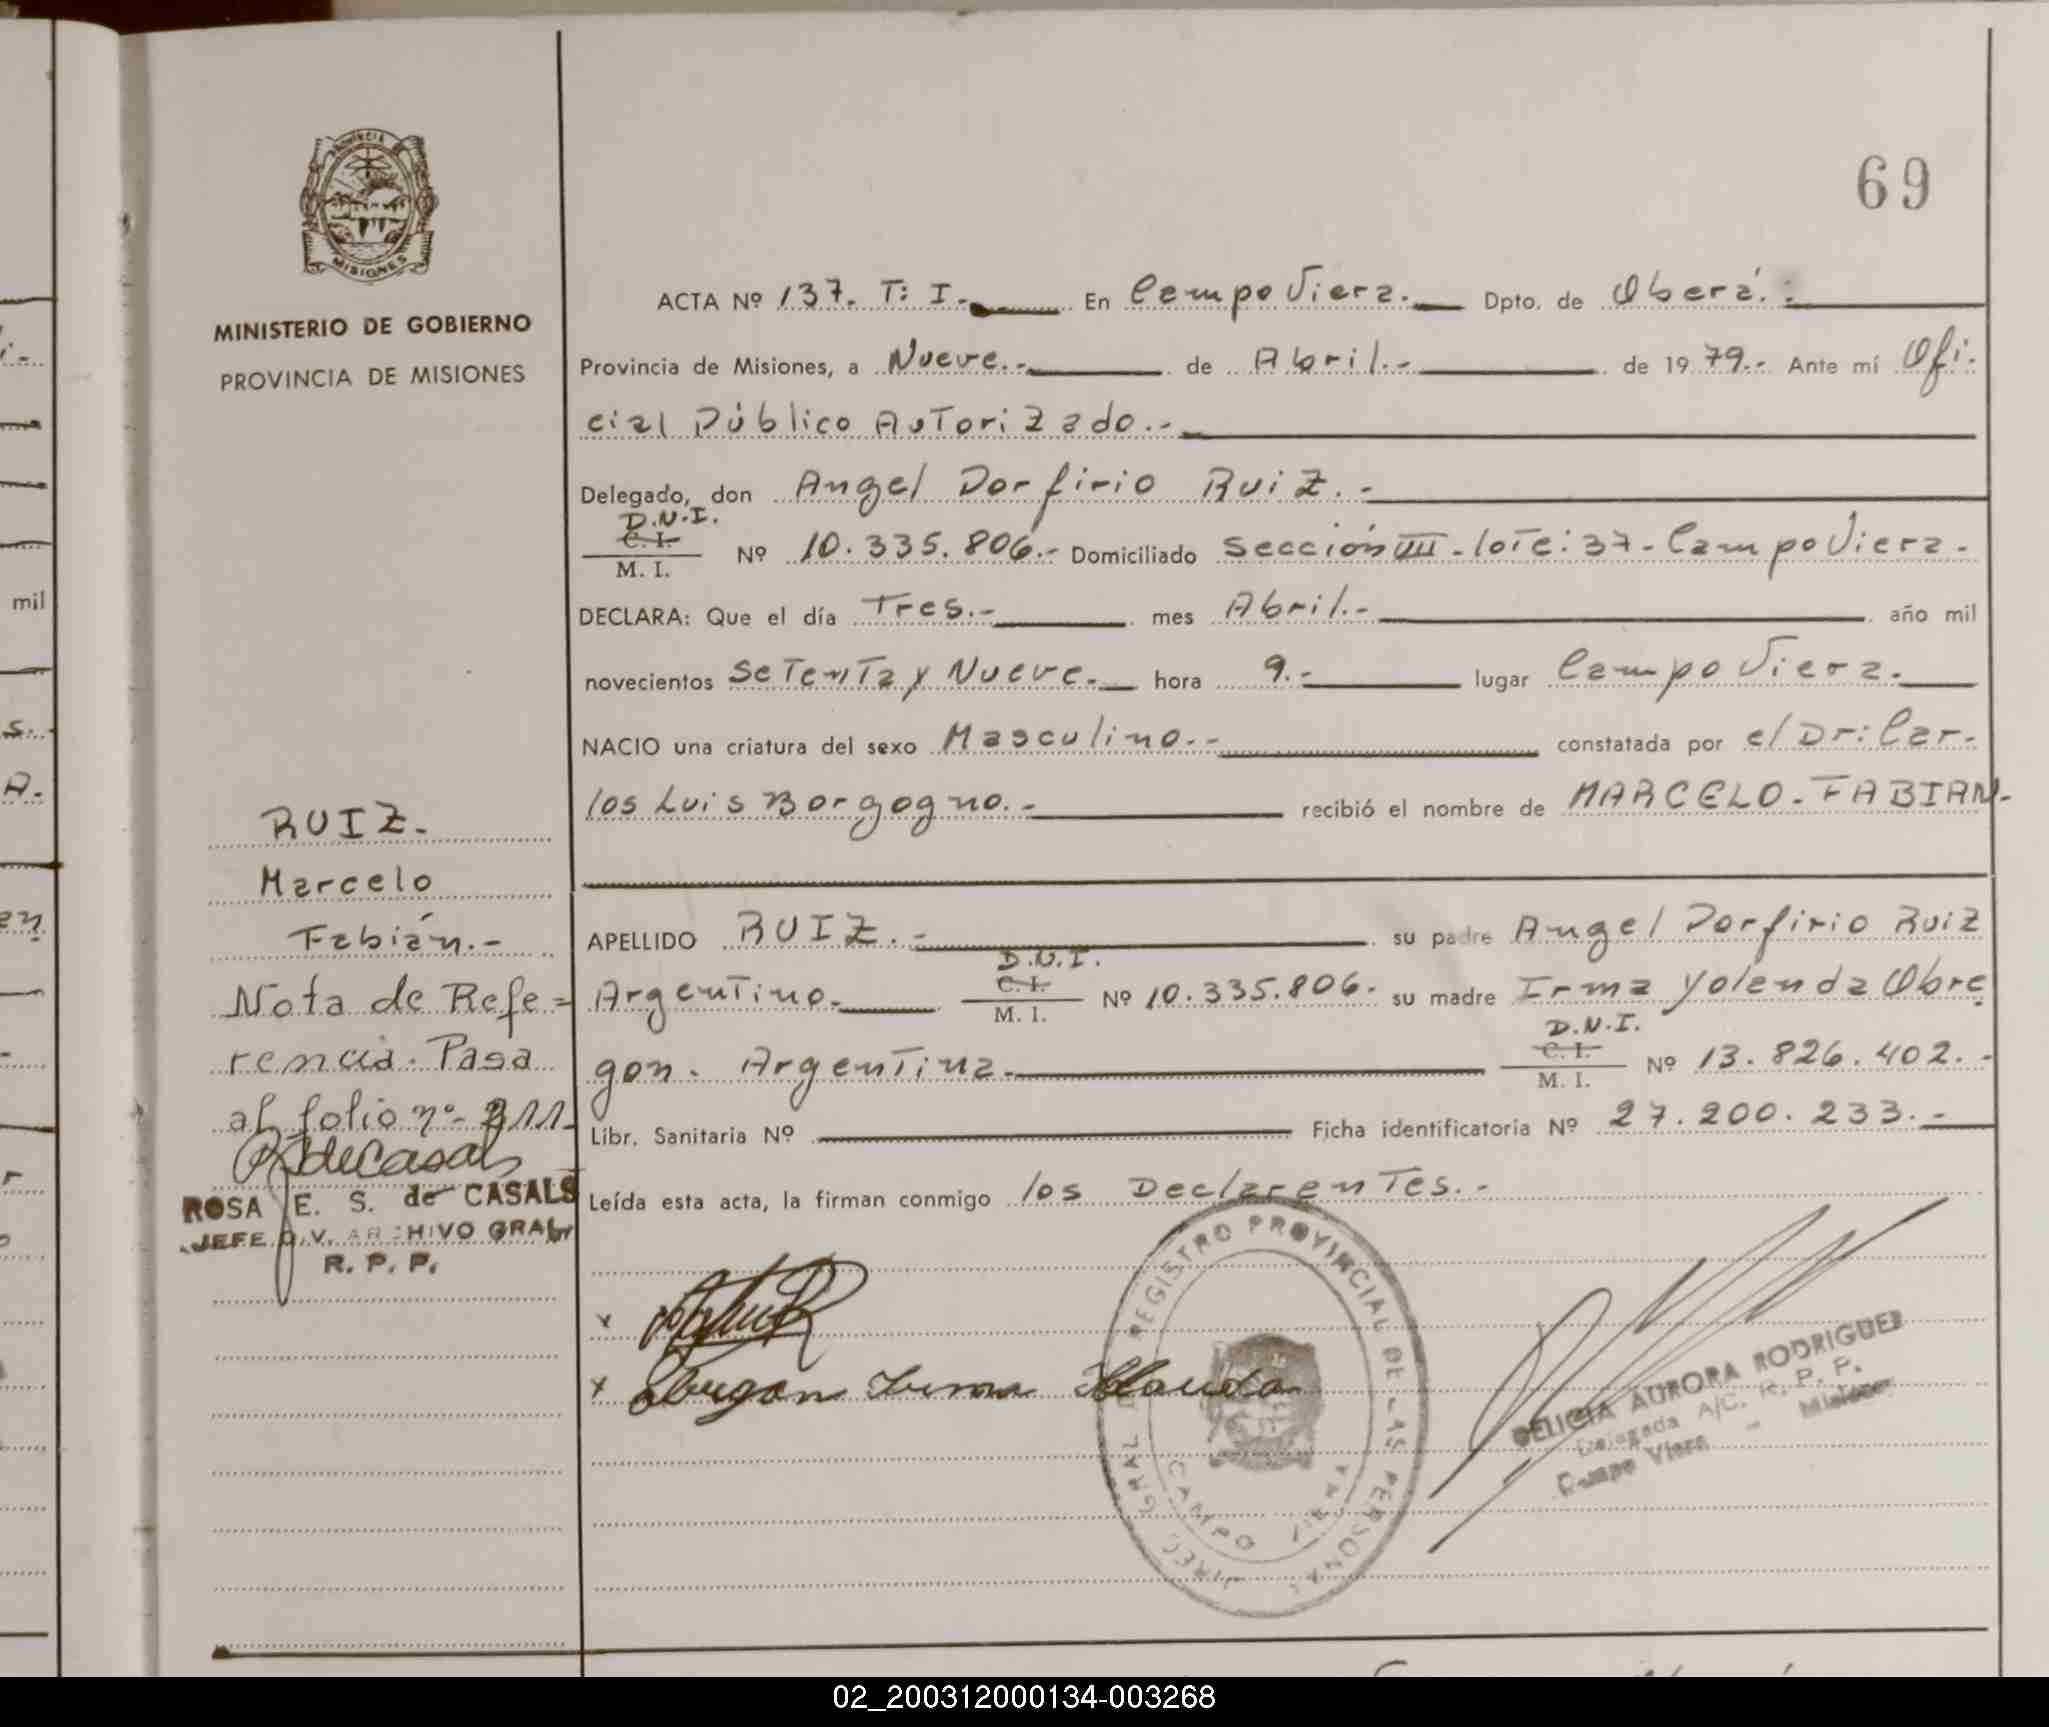 69
PROVINCIA
MISIONES
MINISTERIO DE GOBIERNO
PROVINCIA DE MISIONES
ACTA Nº 137. T: I.- En Campo Viera.- Dpto. de Oberá.-
Provincia de Misiones, a Nueve.- de Abril.- de 1979.- Ante mí Ofi-
cial Público Autorizado.-
Delegado, don Angel Porfirio Ruiz.-
D.N.I.
C. I.
M. I.
Nº 10.335.806.- Domiciliado Sección VIII - lote: 37 - Campo Viera.-
DECLARA: Que el día Tres.- mes Abril.- año mil
novecientos Setenta y Nueve.- hora 9.- lugar Campo Viera.
NACIO una criatura del sexo Masculino.- constatada por el Dr: Car-
los Luis Borgogno.- recibió el nombre de MARCELO-FABIAN-
APELLIDO RUIZ.- su padre Angel Porfirio Ruiz
D.N.I.
Argentino.- C. I. Nº 10.335.806.- su madre Irma Yolanda Obre
M. I.
D.N.I.
gon. Argentina.- C. I. Nº 13.826.402.-
M. I.
Libr. Sanitaria Nº Ficha identificatoria Nº 27.200.233.-
Leída esta acta, la firman conmigo los Declarantes.-
RUIZ.-
Marcelo
Fabián.-
Nota de Refe=
rencia. Pasa
al folio nº
RdeCasals
ROSA E. S. de CASALS
JEFE DIV. ARCHIVO GRAL
R. P. P.
x
x Obregon Irma Yolanda
DIREC. GRAL. REGISTRO PROVINCIAL DE LAS PERSONAS
CAMPO VIERA
DELICIA AURORA RODRIGUEZ
Delegada A/C. R. P. P.
Campo Viera - Misiones
02_200312000134-003268